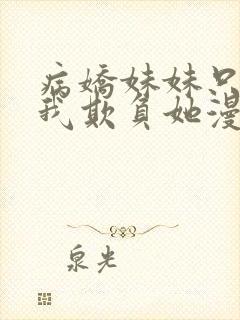 病嬌妹妹只
我欺負她漫
泉光